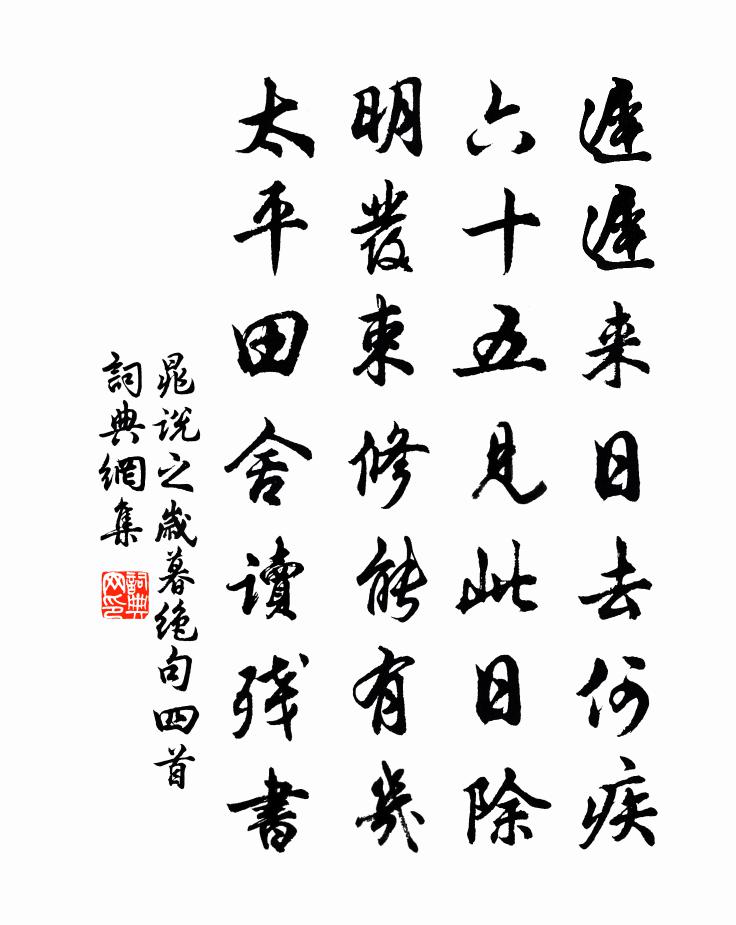 遲遲来日去何疾
六十五見此日除
明發束修能有幾
太平田舍讀残書
晁說之歲暮絶句四首
詞典網集
詞典网印